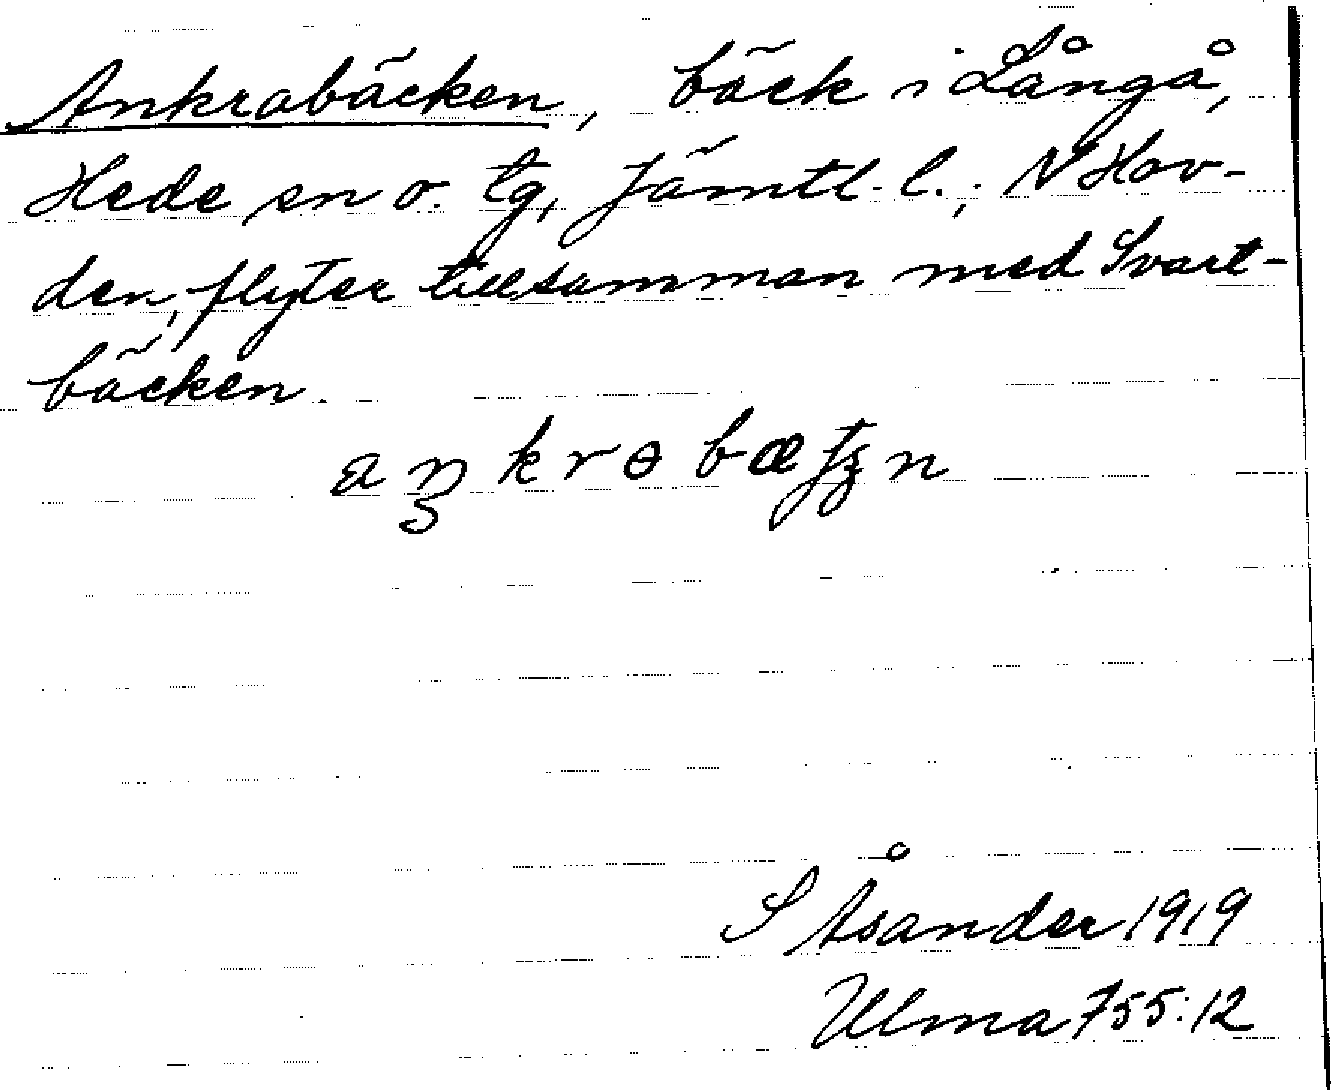 Ankrabäcken, bäck i Långå,
Hede sn o. tg, Jämtl. l.; N Hov-
den, flyter tillsamman med Svart-
bäcken.
S Åsander 1919
Ulma 755:12